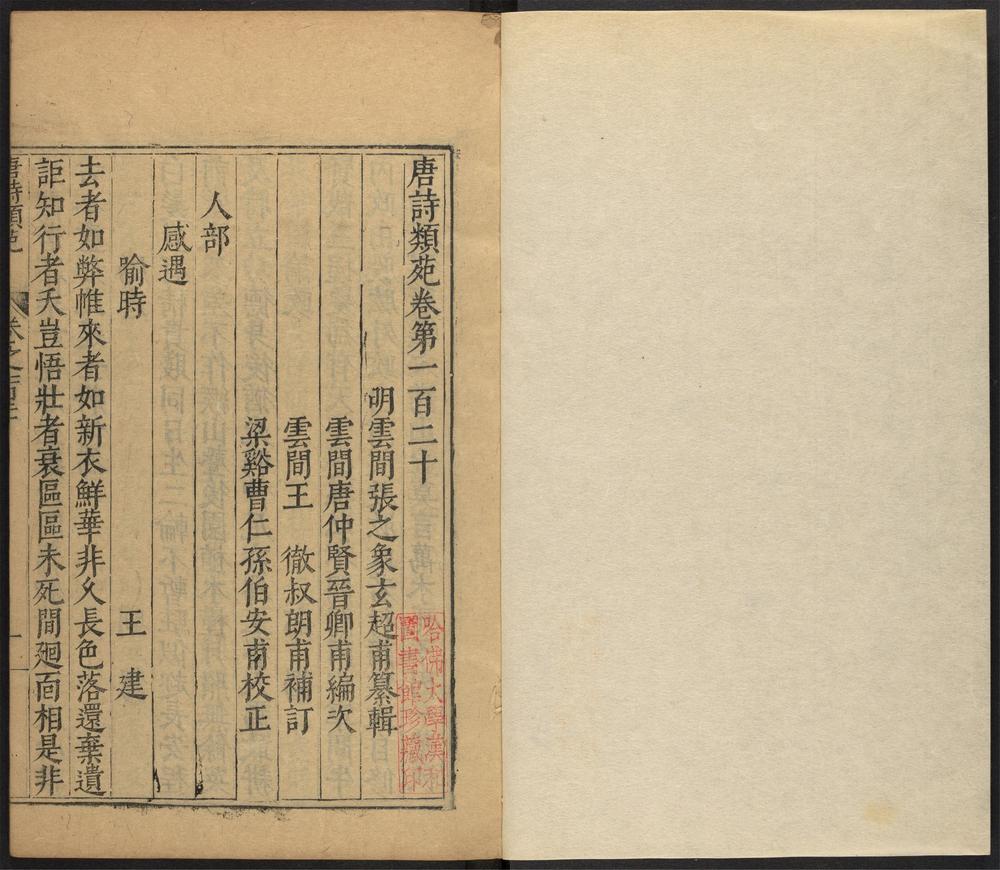 唐詩類苑卷第一百二十
明雲間張之象玄超甫纂輯
雲間唐仲賢晉卿甫編次
雲間王 徹叔朗甫補訂
梁谿曹仁孫伯安甫校正
人部
感遇
喻時 王 建
去者如弊帷來者如新衣鮮華非久長色落還棄遺
詎知行者夭豈悟壯者衰區區未死間廻面相是非
唐詩類苑 卷之 一
哈佛大學漢和
圖書館珍藏印